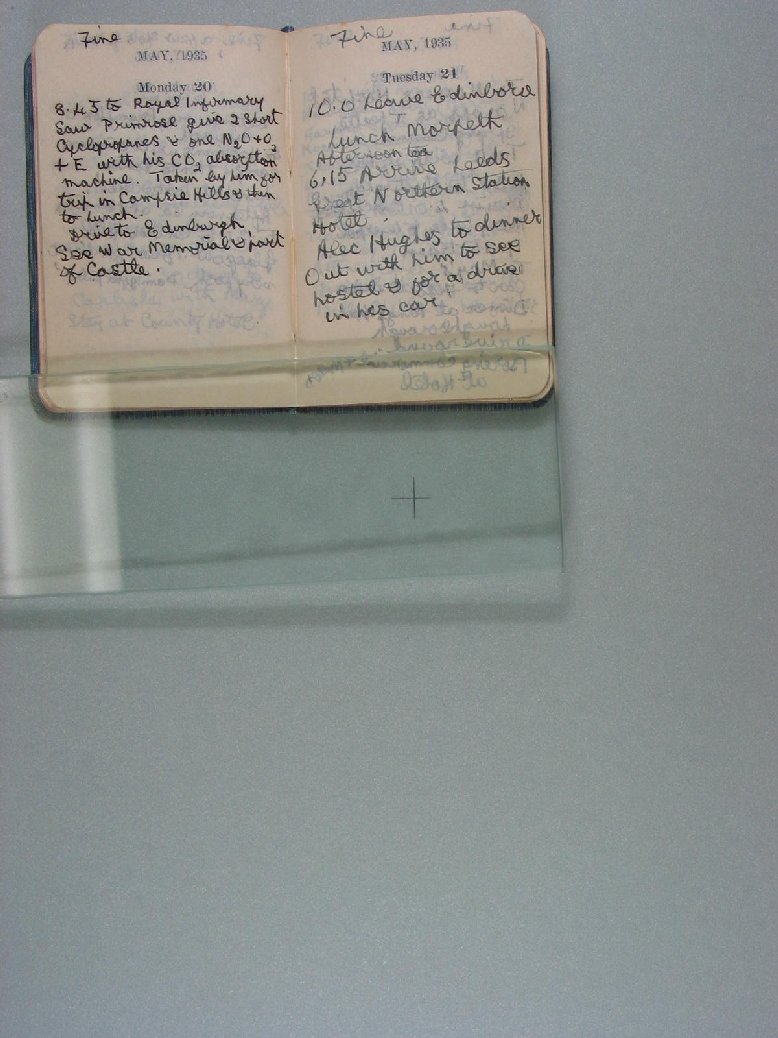 Fine
MAY, 1935
Monday 20
8.45 to Royal Infirmary
Saw Primrose give 2 short
Cyclopropanes & one N2O+O2
+ E with his CO2 absorption
machine. Taken by him for
trip in Campsie Hills & then
to lunch.
Drive to Edinburgh,
See War Memorial & part
of Castle.
Fine
MAY, 1935
Tuesday 21
10.0 Leave Edinboro
Lunch Morpeth
Afternoon tea
6,15 Arrive Leeds
Great Northern Station
Hotel.
Alec Hughes to dinner
Out with him to see
hostel & for a drive
in his car.